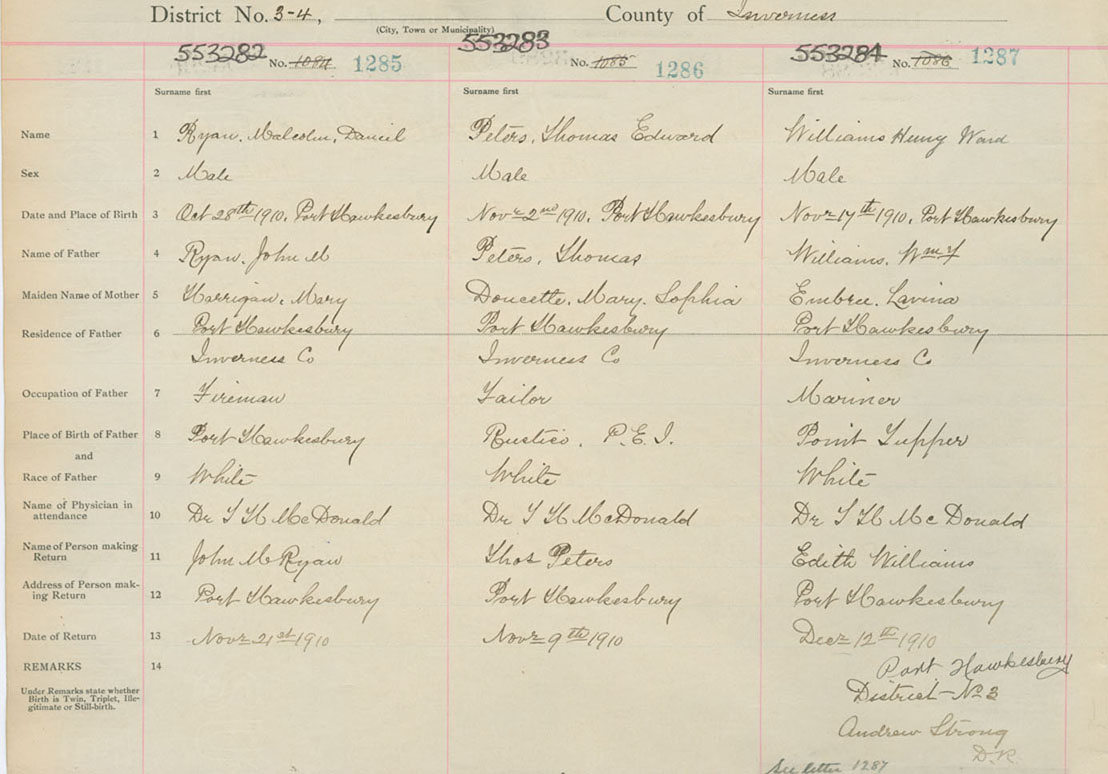 District No. 3-4, County of Inverness
(City, Town or Municipality)
553282 No. 1084 1285 553283 No. 1085 1286 553284 No. 1086 1287
Surname first Surname first Surname first
Name 1 Ryan, Malcolm, Daniel Peters, Thomas Edward Williams Henry Ward
Sex 2 Male Male Male
Date and Place of Birth 3 Oct 28th 1910, Port Hawkesbury Novr 2nd 1910, Port Hawkesbury Novr 17th 1910, Port Hawkesbury
Name of Father 4 Ryan, John M Peters, Thomas Williams, Wm
Maiden Name of Mother 5 Harrigan, Mary Doucette, Mary, Sophia Embree, Lavina
Residence of Father 6 Port Hawkesbury Port Hawkesbury Port Hawkesbury
Inverness Co Inverness Co Inverness Co
Occupation of Father 7 Fireman Tailor Mariner
Place of Birth of Father 8 Port Hawkesbury Rustico, P.E.I. Point Tupper
and
Race of Father 9 White White White
Name of Physician in
attendance 10 Dr McDonald Dr McDonald Dr McDonald
Name of Person making
Return 11 John M Ryan Thos Peters Edith Williams
Address of Person mak-
ing Return 12 Port Hawkesbury Port Hawkesbury Port Hawkesbury
Date of Return 13 Novr 21st 1910 Novr 9th 1910 Decr 12th 1910
REMARKS 14 Port Hawkesbury
Under Remarks state whether
Birth is Twin, Triplet, Ille-
gitimate or Still-birth.
District No 3
Andrew Strong
D.R.
See letter 1287